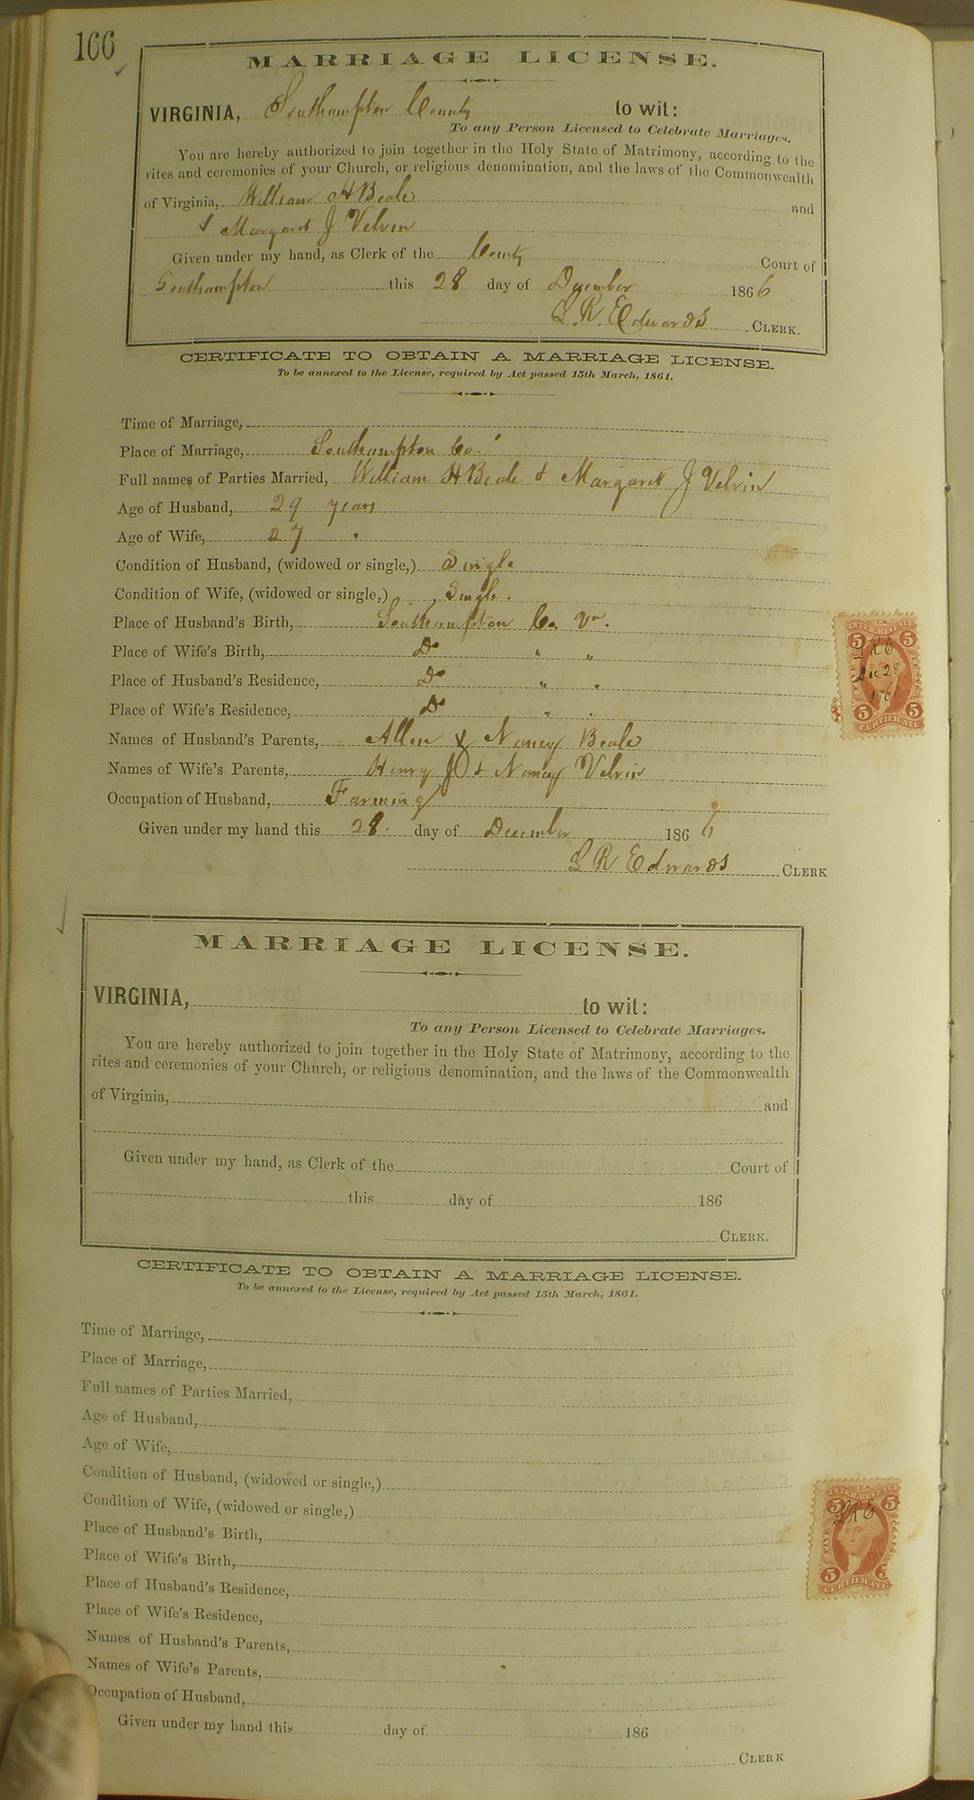 166
MARRIAGE LICENSE.
VIRGINIA, Southampton County to wit:
To any Person Licensed to Celebrate Marriages.
You are hereby authorized to join together in the Holy State of Matrimony, according to the
rites and ceremonies of your Church, or religious denomination, and the laws of the Commonwealth
of Virginia, William H Beale and
& Margaret J Velvin
Given under my hand, as Clerk of the County Court of
Southampton this 28 day of December 1866
L. R. Edwards CLERK.
CERTIFICATE TO OBTAIN A MARRIAGE LICENSE.
To be annexed to the License, required by Act passed 15th March, 1861.
Time of Marriage,
Place of Marriage, Southampton Co.
Full names of Parties Married, William H Beale & Margaret J Velvin
Age of Husband, 29 years
Age of Wife, 27 "
Condition of Husband, (widowed or single,) Single
Condition of Wife, (widowed or single,) Single.
Place of Husband's Birth, Southampton Co. Va.
Place of Wife's Birth, Do " "
Place of Husband's Residence, Do " "
Place of Wife's Residence, Do " "
Names of Husband's Parents, Allen & Nancy Beale
Names of Wife's Parents, Henry J & Nancy Velvin
Occupation of Husband, Farming
Given under my hand this 28. day of December 1866
L R Edwards CLERK
5 INTER. REVENUE 5
LRE
Dec 28
186
5 CERTIFICATE 5
MARRIAGE LICENSE.
VIRGINIA, to wit:
To any Person Licensed to Celebrate Marriages.
You are hereby authorized to join together in the Holy State of Matrimony, according to the
rites and ceremonies of your Church, or religious denomination, and the laws of the Commonwealth
of Virginia, and
Given under my hand, as Clerk of the Court of
this day of 186
CLERK.
CERTIFICATE TO OBTAIN A MARRIAGE LICENSE.
To be annexed to the License, required by Act passed 15th March, 1861.
Time of Marriage,
Place of Marriage,
Full names of Parties Married,
Age of Husband,
Age of Wife,
Condition of Husband, (widowed or single,)
Condition of Wife, (widowed or single,)
Place of Husband's Birth,
Place of Wife's Birth,
Place of Husband's Residence,
Place of Wife's Residence,
Names of Husband's Parents,
Names of Wife's Parents,
Occupation of Husband,
Given under my hand this day of 186
CLERK
5 INTER. REVENUE 5
LRE
5 CERTIFICATE 5